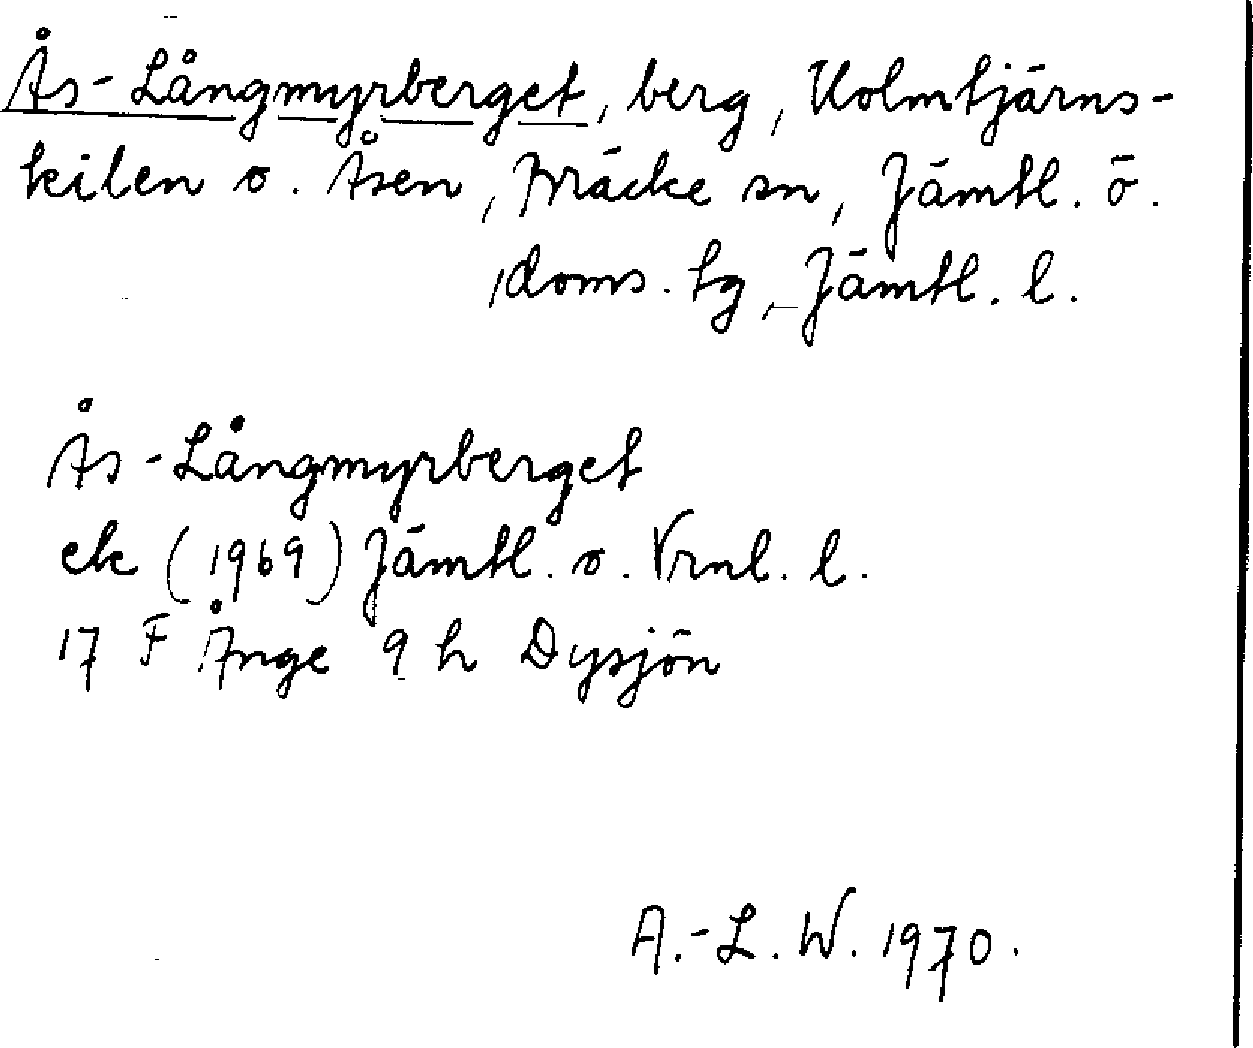 Ås-Långmyrberget, berg, Holmtjärns-
kilen o. Åsen, Bräcke sn, Jämtl. ö.
doms. tg, Jämtl. l.
Ås-Långmyrberget
ek (1969) Jämtl. o. Vrnl. l.
17 F Ånge 9 h Dysjön
A.-L. W. 1970.